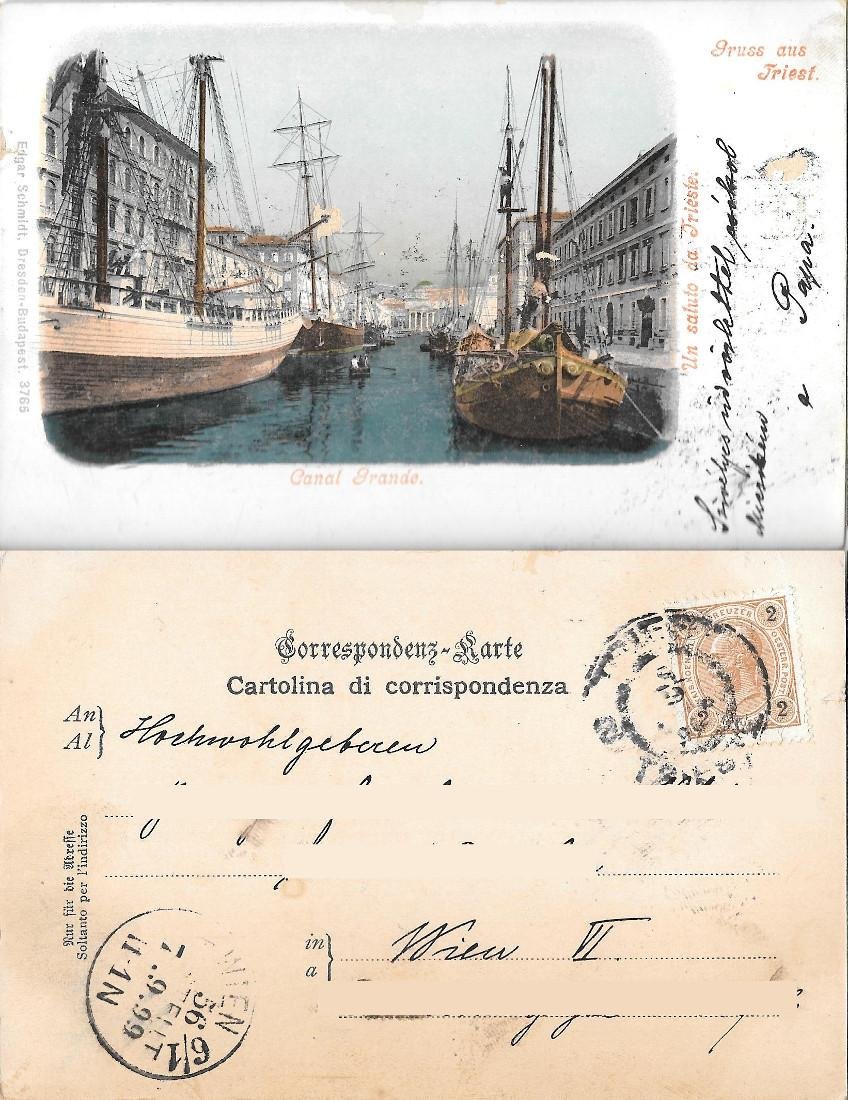 Gruss aus
Triest.
Un saluto da Trieste.
Edgar Schmidt, Dresden-Budapest. 3765
Canal Grande.
Szívélyes üdvözlettel
a Papa.
Correspondenz-Karte
Cartolina di corrispondenza
An
Al
Hochwohlgeboren
Nur für die Adresse
Soltanto per l'indirizzo
in
a
Wien VI.
KREUZER
2
2
2
WIEN 6/1
56
7.9.99
11-1N